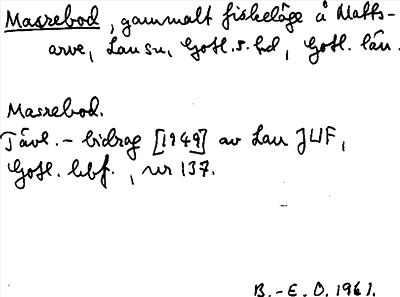 Masrebod, gammalt fiskeläge å Matts-
arve, Lau sn, Gotl. s. hd, Gotl. län.
Masrebod.
Tävl.- bidrag [1949] av Lau JUF,
Gotl. hbf., nr 137.
B.-E. O. 1961.